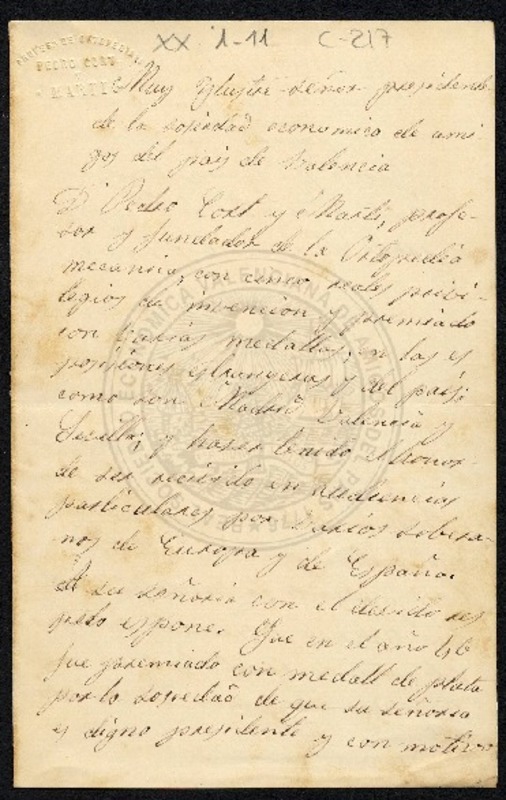 XX 1-11 C-217
PEDRO CORT
MARTÍ
Muy Yluster señor presidente
de la sosiedad economica de ami-
gos del pais de Valencia
Dn Pedro Cort y Marti, profe-
sor y fundador de la Ortopedia
mecanica, con cinco reales privi-
legios de invencion y premiado
con varias medallas, en las es
posisiones estrangeras y del pais;
como son Madrid Valencia y
Sevilla; y haver tenido el honor
de ser recivido en audiencias
particulares por varios sobera-
nos de Europa y de España.
A su señoria con el devido res
peto espone. Que en el año 46
fue premiado con medall de plata
por la sosyedad de que su señoria
es digno presidente y con motivo